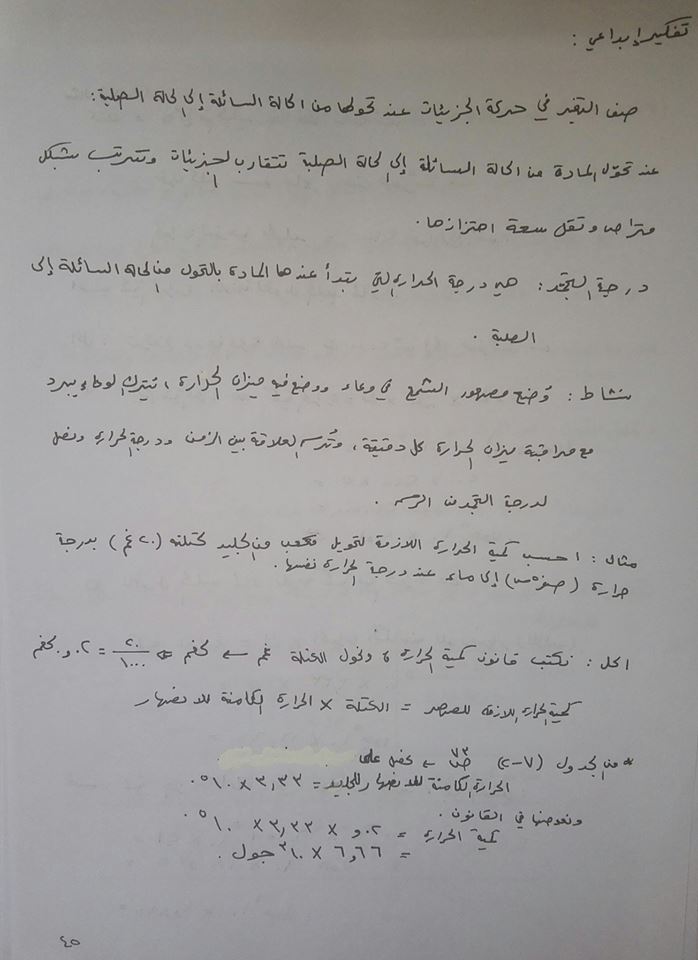 تفكير إبداعي :
صف التغير في حركة الجزيئات عند تحولها من الحالة السائلة إلى الحالة الصلبة :
عند تحوّل المادة من الحالة السائلة إلى الحالة الصلبة تتقارب الجزيئات وتترتب بشكل
متراص وتقل سعة اهتزازها .
درجة التجمّد : هي درجة الحرارة التي تبدأ عندها المادة بالتحول من الحالة السائلة إلى
الصلبة .
نشاط : وُضع مصهور الشمع في وعاء ووضع فيه ميزان الحرارة ، يُترك الوعاء يبرد
مع مراقبة ميزان الحرارة كل دقيقة ، وتُرسم العلاقة بين الزمن ودرجة الحرارة ونصل
لدرجة التجمد من الرسم .
مثال : احسب كمية الحرارة اللازمة لتحويل مكعب من الجليد كتلته (٢٠ غم) بدرجة
حرارة (صفر°س) إلى ماء عند درجة الحرارة نفسها .
الحل : نكتب قانون كمية الحرارة ، ونحول الكتلة غم ← كغم ⇐ ٢٠/١٠٠٠ = ٠.٢و. كغم
كمية الحرارة اللازمة للصهر = الكتلة × الحرارة الكامنة للانصهار
* من الجدول (٧-٢) ص٧٣ ← نحصل على
الحرارة الكامنة للانصهار للجليد = ٣,٣٣ × ١٠^٥ .
ونعوضها في القانون .
كمية الحرارة = ٠٢و × ٣,٣٣ × ١٠^٥ .
= ٦,٦٦ × ١٠^٣ جول .
٤٥